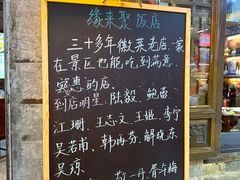 缘来聚饭店
三十多年徽菜老店.家
在景区也能吃到满意
实惠的店.
到店明星、陆毅、鲍蕾
江珊、王志文、王姬、李宁
吴若甫、韩再芬、解晓东
吴琼、
敬一丹、肖雄